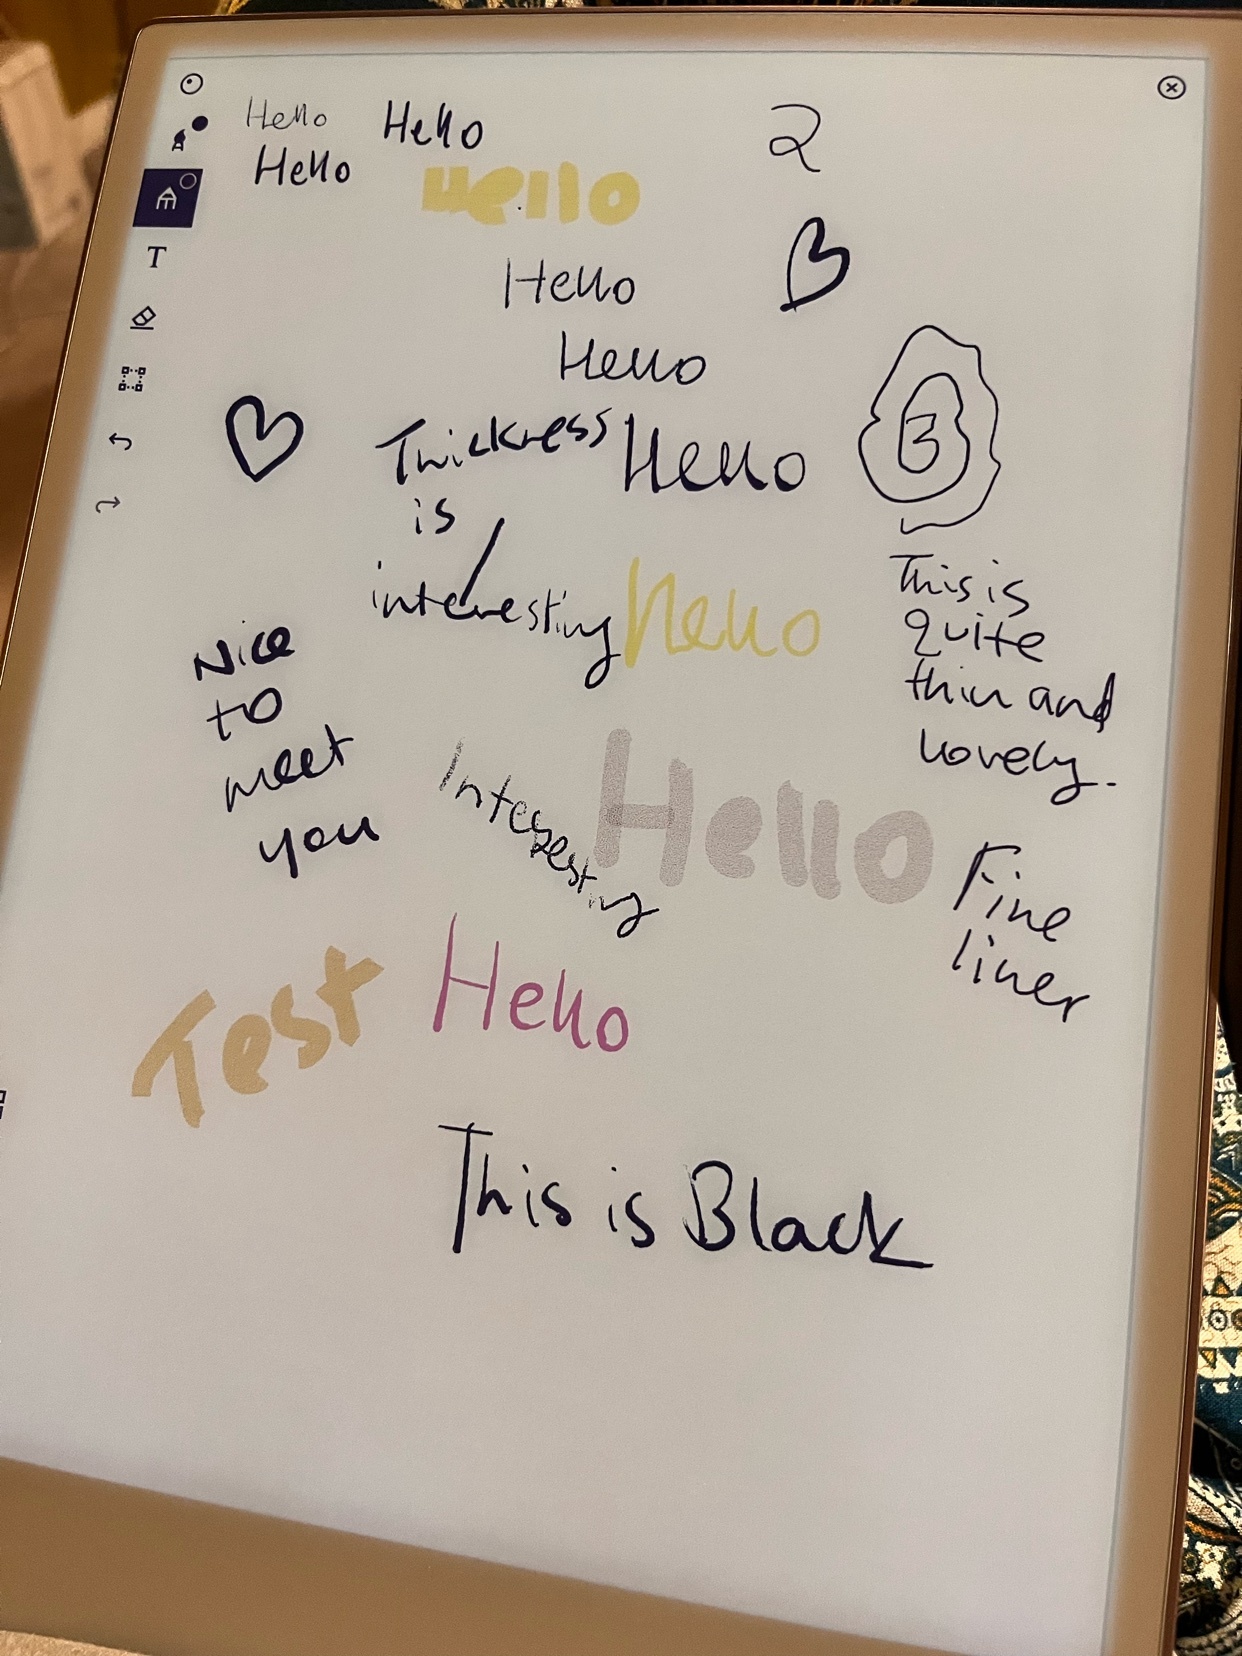 Hello Hello 2
Hello
Hello
T
Hello
Hello
Thickness
Hello
is
interesting
Hello
This is
quite
thin and
lovely.
Nice
to
meet
you
Interesting
Hello
Fine
liner
Test
Hello
This is Black